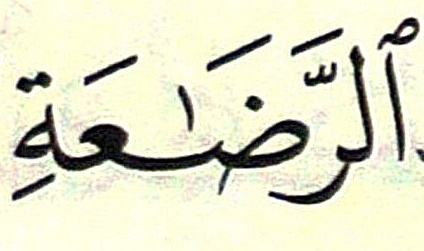 ٱلرَّضَـٰعَةِ